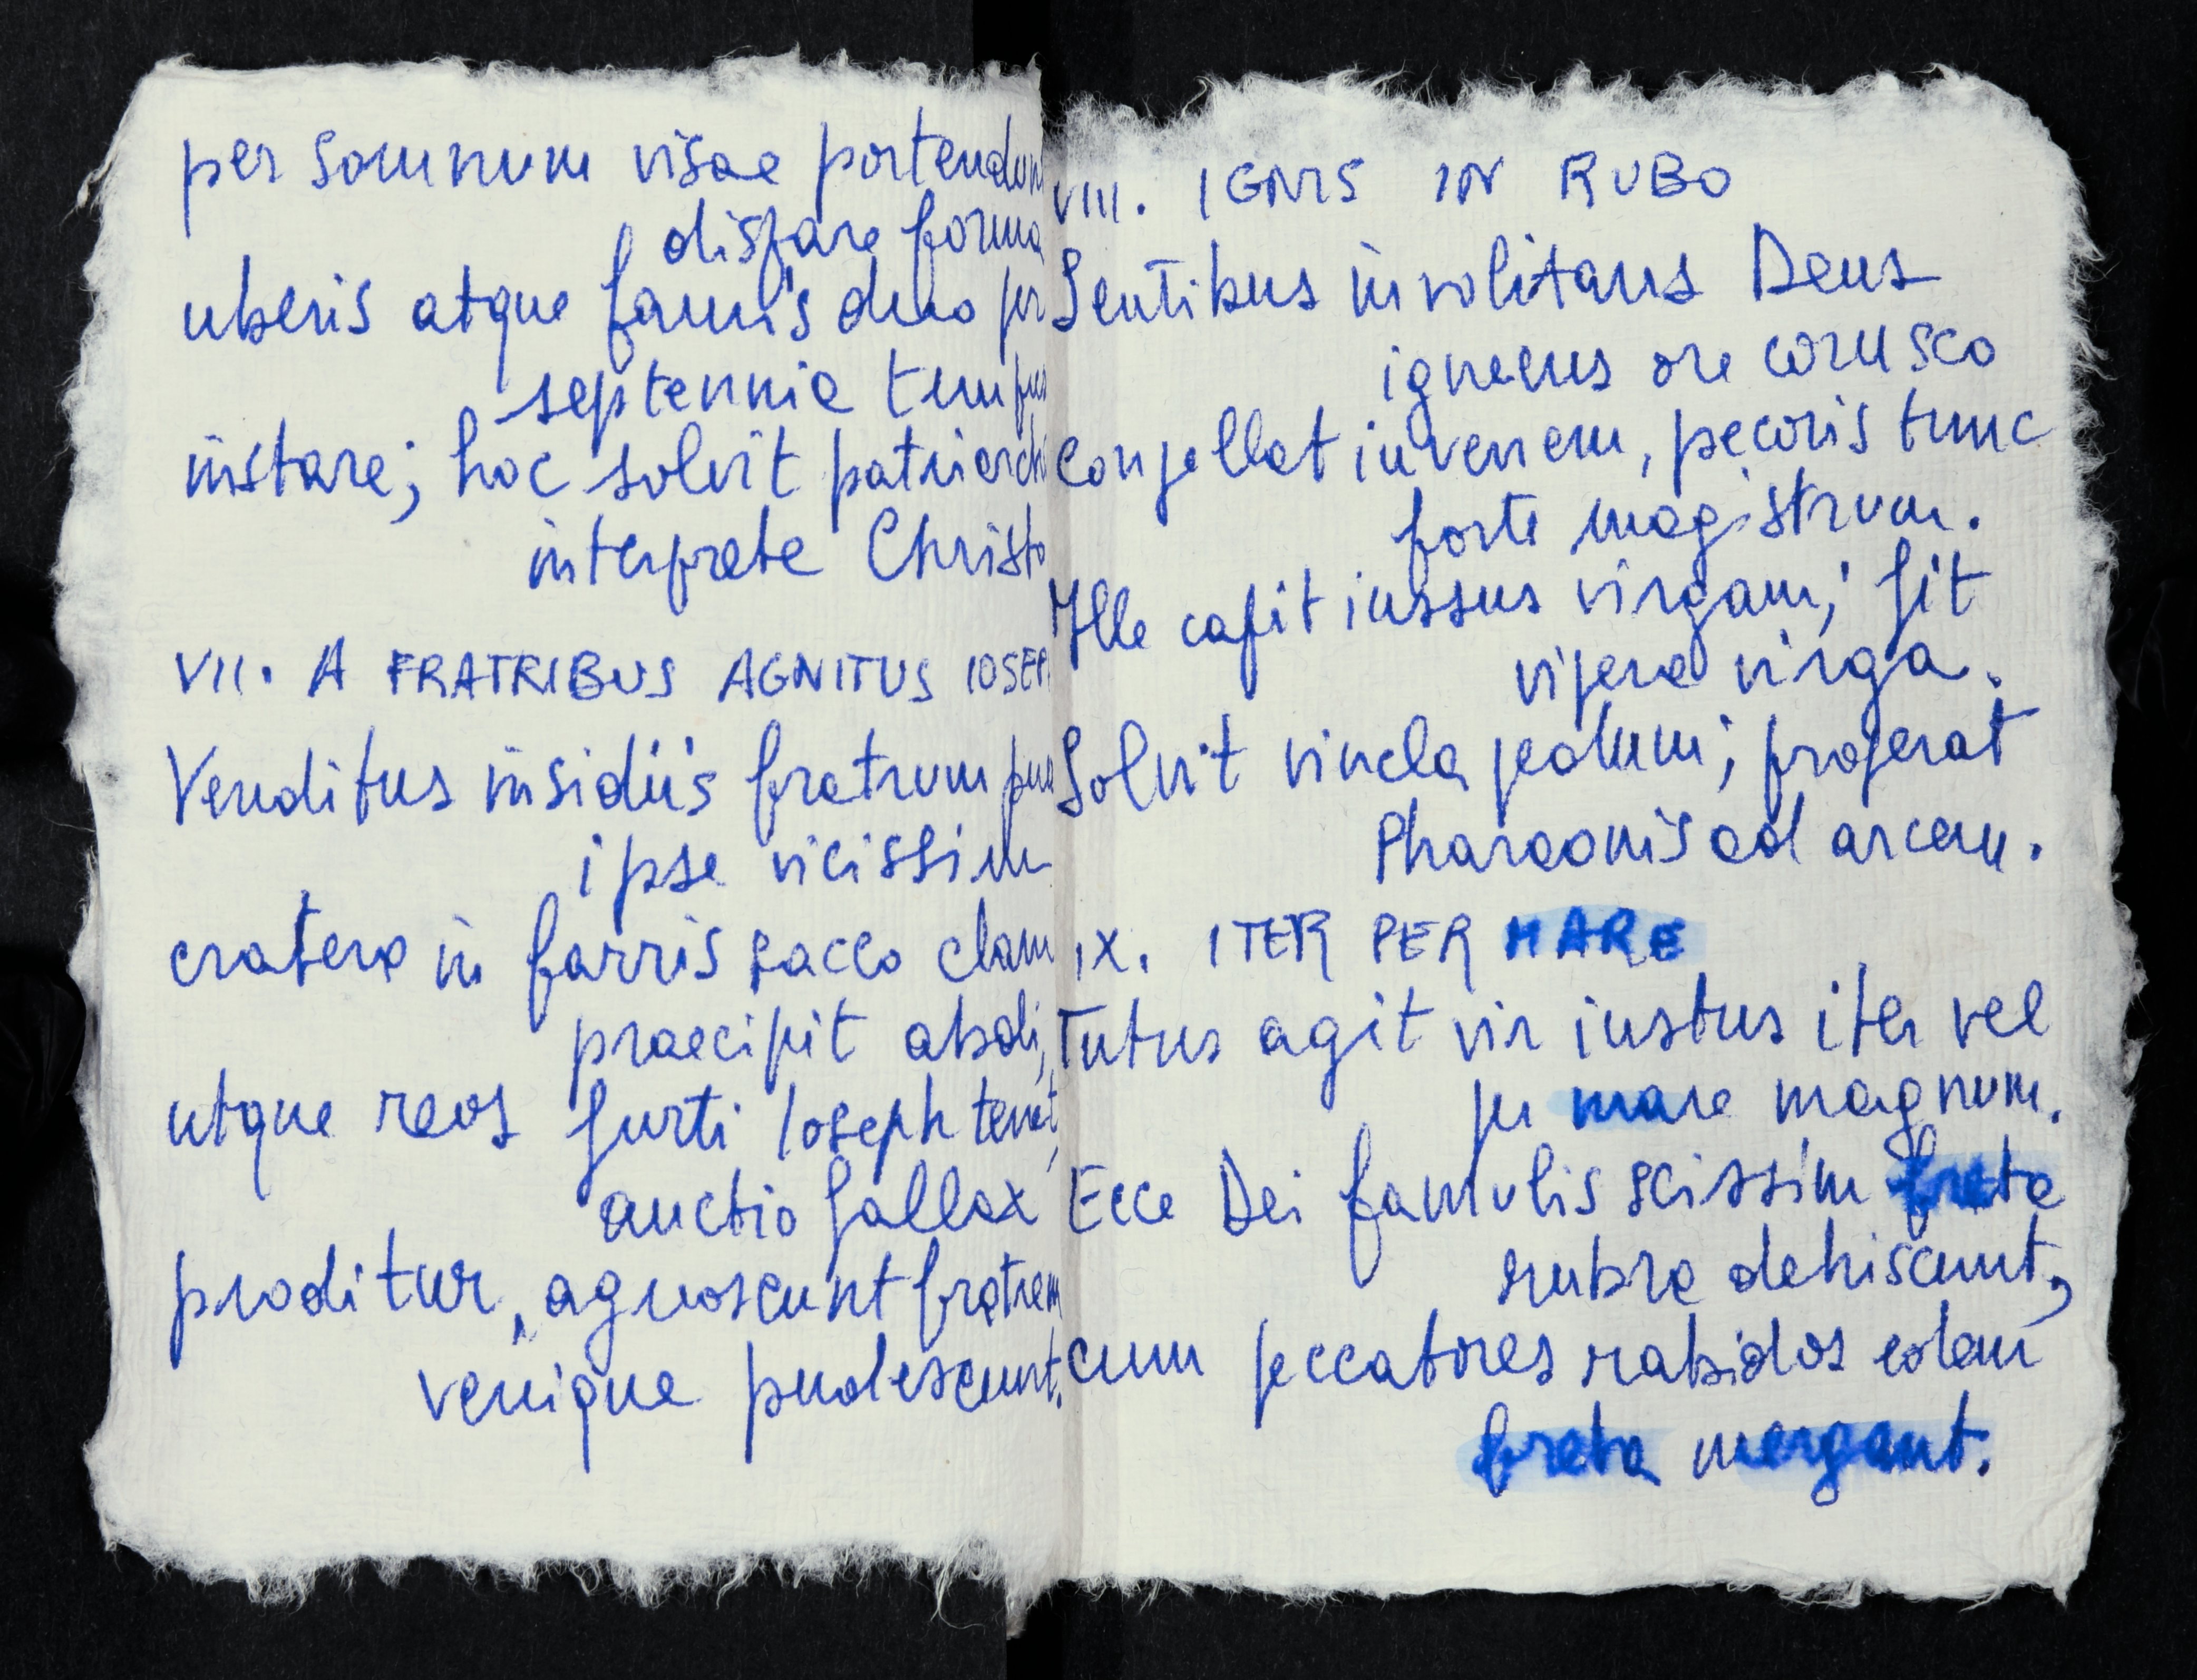 per somnum visae portendunt
dispare forma
uberis atque famis duo per
septennia tempus
instare; hoc solvit patriarcha
interprete Christo
VII. A FRATRIBUS AGNITUS IOSEPH
Venditus insidiis fratrum puer
ipse vicissim
cratera in farris sacco clam
praecipit abdi,
utque reos furti Ioseph tenet,
auctio fallax
proditur, agnoscunt fratrem
venique pudescunt.
VIII. IGNIS IN RUBO
Sentibus involitans Deus
igneus ore corusco
conpellat iuvenem, pecoris tunc
forte magistrum.
Ille capit iussus virgam; fit
vipera virga.
Solvit vincla pedum; properat
Pharaonis ad arcem.
IX. ITER PER MARE
Tutus agit vir iustus iter vel
per mare magnum.
Ecce Dei famulis scissim freta
rubra dehiscunt,
cum peccatores rabidos eadem
freta mergant.